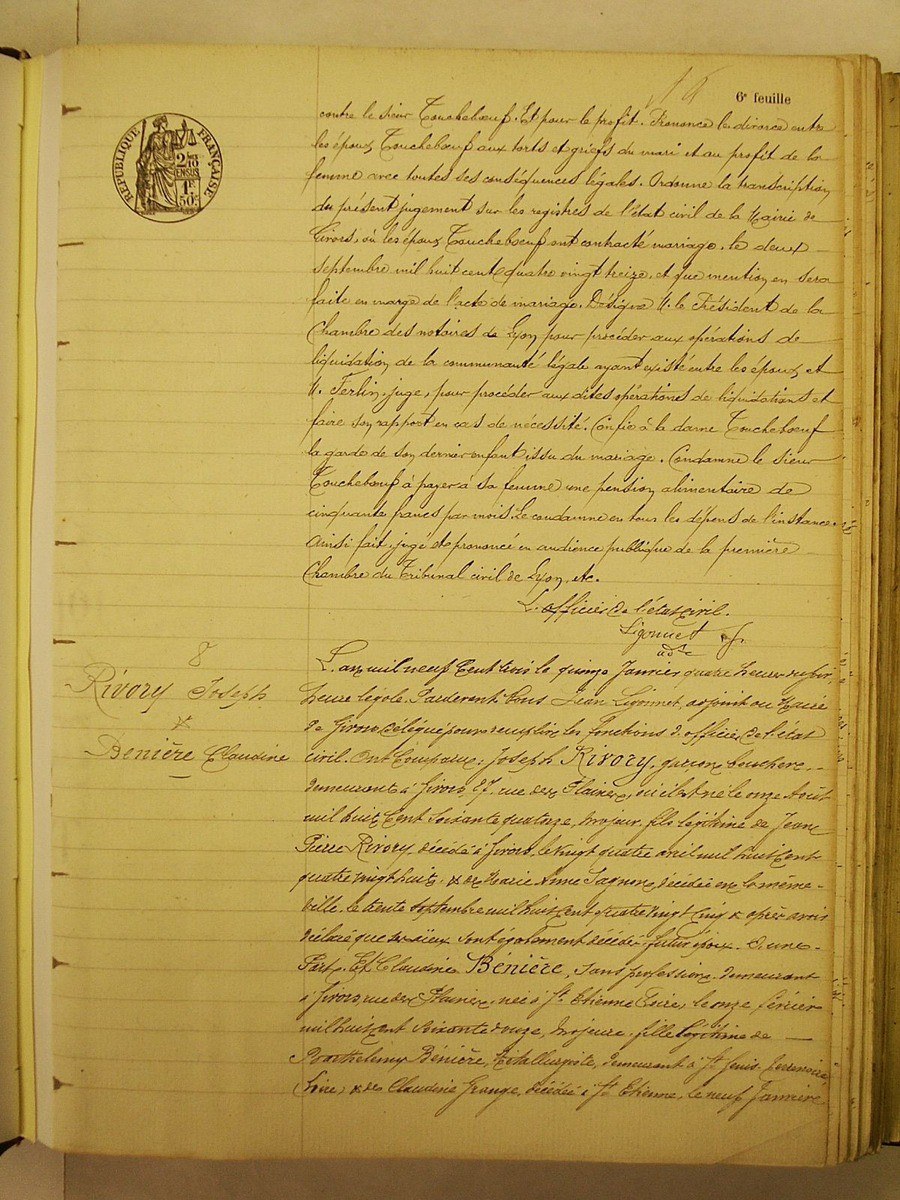 6e feuille
RÉPUBLIQUE FRANÇAISE
2/10 EN SUS
1F 50c
contre le sieur Toucheboeuf. Et pour le profit. Prononce le divorce entre
les époux Toucheboeuf aux torts et griefs du mari et au profit de la
femme avec toutes ses conséquences légales. Ordonne la transcription
du présent jugement sur les registres de l'état civil de la Mairie de
Givors, où les époux Toucheboeuf ont contracté mariage, le deux
septembre mil huit cent quatre vingt treize, et que mention en sera
faite en marge de l'acte de mariage. Désigne M. le Président de la
Chambre des notaires de Lyon pour procéder aux opérations de
liquidation de la communauté légale ayant existé entre les époux, et
M. Ferlin, juge, pour procéder aux dites opérations de liquidations et
faire son rapport en cas de nécessité. Confie à la dame Toucheboeuf
la garde de son dernier enfant issu du mariage. Condamne le sieur
Toucheboeuf à payer à sa femme une pension alimentaire de
cinquante francs par mois. Le condamne en tous les dépens de l'instance.
Ainsi fait, jugé et prononcé en audience publique de la première
Chambre du Tribunal civil de Lyon, etc.
L'officier de l'état civil.
Ligonnet J.
adj
8
Rivory Joseph
&
Benière Claudine
L'an mil neuf Cent trois le quinze Janvier quatre heures du soir,
heure légale. Pardevant Nous Jean Ligonnet, adjoint au Maire
de Givors délégué pour remplir les fonctions d'officier de l'état
civil. Ont Comparu: Joseph Rivory, garçon boucher,
demeurant à Givors, 27, rue des Plaines, où il est né le onze Août
mil huit Cent soixante quatorze, majeur, fils légitime de Jean
Pierre Rivory, décédé à Givors, le vingt quatre avril mil huit Cent
quatre vingt huit, & de Marie Anne décédée en la même
ville, le trente septembre mil huit Cent quatre vingt Cinq & après avoir
déclaré que ses aïeux sont également décédés, futur époux. D'une
Part. Et Claudine Bénière, sans profession, demeurant
à Givors, rue des Plaines, née à St Etienne Loire, le onze février
mil huit Cent soixante majeure, fille légitime de
Barthelemy Bénière, Métallurgiste, demeurant à St
Loire, & de Claudine Grange, décédée à St Etienne, le neuf Janvier